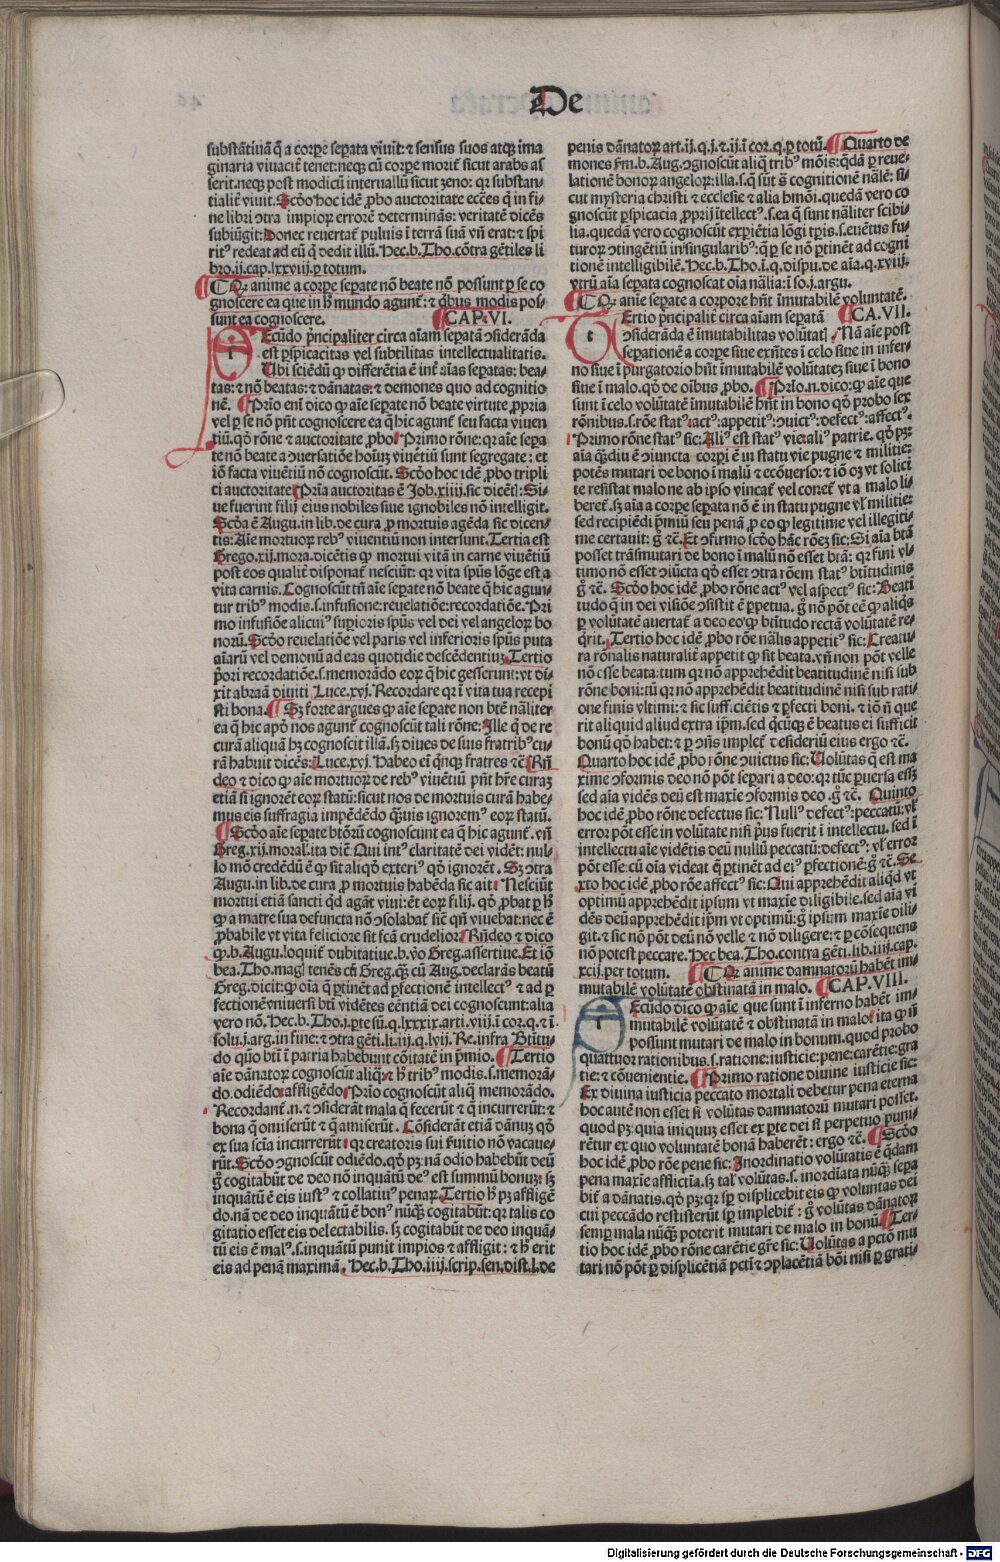 De
substātiuā q̄ a corpe sepata viuit: ⁊ sensus suos atq; ima
ginaria viuacit̄ tenet: neq; cū corpe morit̄ sicut arabs as
serit. neq; post modicū interuallū sicut zeno: qꝛ substan-
tialit̄ viuit. Scďo hoc idē ꝓbo auctoritate ecc̄es q̄ in fi-
ne libri ꝯtra impioꝝ errorē determinās: veritatē dicēs
subiūgit: Donec reuertat̄ puluis ī terrā suā vn̄ erat: ⁊ spi
rit⁹ redeat ad eū q̄ dedit illū. Hec. b. Tho. cōtra gētiles li
bro. ij. cap. lxxviij. ꝑ totum.
Qꝛ anime a corpe sepate nō beate nō possunt ꝑ se co
gnoscere ea que in h̄ mundo agunt̄: ⁊ q̄bus modis pos-
sunt ea cognoscere. CAP. VI.
t Ecūdo pͥncipaliter circa aīam sepatā ꝯsiderāda
est ꝑspicacitas vel subtilitas intellectualitatis.
Ubi sciēdū ꝙ differētia ē int̄ aīas separatas: bea-
tas: ⁊ nō beatas: ⁊ dānatas: ⁊ demones quo ad cognitio
nē. Prīo enī dico ꝙ aīe sepate nō beate virtute ꝓpria
vel ꝑ se nō pn̄t cognoscere ea q̄ hic agunt̄ seu facta viuen
tiū. qď rōne ⁊ auctoritate ꝓbo. Primo rōne: qꝛ aīe sepa
te nō beate a ꝯuersatiōe hoīuȝ viuētiū sunt segregate: et
iō facta viuētiū nō cognoscūt. Scďo hoc idē ꝓbo tripli
ci auctoritate. Prīa auctoritas ē Job. xiiij. sic dicētꝭ: Si-
ue fuerint filij eius nobiles siue ignobiles nō intelligit.
Scďa ē Augu. in lib. de cura ꝓ mortuis agēda sic dicen-
tis: Aīe mortuoꝝ reb⁹ viuentiū non intersunt. Tertia est
Grego. xij. mora. dicētis ꝙ mortui vitā in carne viuētiū
post eos qualit̄ disponat̄ nesciūt: qꝛ vita spūs lōge est a
vita carnis. Cognoscūt tn̄ aīe sepate nō beate q̄ hic agun-
tur trib⁹ modis. s. infusione: reuelatiōe: recordatiōe. Pri
mo infusiōe alicui⁹ supioris spūs vel dei vel angeloꝝ bo
noꝝ. Scďo reuelatiōe vel paris vel inferioris spūs puta
aīarū vel demonū ad eas quotidie descēdentiuȝ. Tertio
pͥori recordatiōe. s. memorādo eoꝝ q̄ hic gesserunt: vt di-
xit abraā diuiti Luce. xvj. Recordare qꝛ ī vita tua recepi
sti bona. Sȝ forte argues ꝙ aīe separate non bt̄e nāliter
ea q̄ hic apď nos agunt̄ cognoscūt tali rōne: Ille q̄ de re
curā aliquā hȝ cognoscit illā. sȝ diues de suis fratrib⁹ cu-
rā habuit dicēs: Luce. xvj. Habeo eī q̄nq; fratres ⁊c̄. Rn̄
deo ⁊ dico ꝙ aīe mortuoꝝ de reb⁹ viuētiū pn̄t hr̄e curaȝ
etiā si ignorēt eoꝝ statū: sicut nos de mortuis curā habe-
mus eis suffragia impēdēdo q̄uis ignorem⁹ eoꝝ statū.
Scďo aīe sepate btōrū cognoscunt ea q̄ hic agunt̄. vn̄
Greg. xij. moral. ita diē. Qui int⁹ claritatē dei vidēt: nul-
lo mō credēdū ē ꝙ sit aliqď exteri⁹ qď ignorēt. Sȝ ꝯtra
Augu. in lib. de cura ꝓ mortuis habēda sic ait: Nesciūt
mortui etiā sancti qd agāt viui: ēt eoꝝ filij. qď ꝓbat ꝑ h̄
ꝙ a matre sua defuncta nō ꝯsolabat̄ sicut q̄n viuebat: nec ē
ꝓbabile vt vita feliciore sit fcā crudelior. Rn̄deo ⁊ dico
ꝙ. b. Augu. loquit̄ dubitatiue. b. vo Greg. assertiue. Et iō
bea. Tho. magꝭ tenēs cū Greg. q̄ȝ cū Aug. declarās beatū
Greg. dicit: ꝙ oīa q̄ ꝑtinēt ad ꝑfectionē intellect⁹ ⁊ ad ꝑ
fectionē vniuersi bt̄i vidētes eēntiā dei cognoscunt: alia
vero nō. Hec. b. Tho. j. ꝑte sū. q. lxxxix. arti. viij. ī coꝝ. q. ⁊ ī
solu. j. arg. in fine: ⁊ ꝯtra gēti. li. iij. q. lvij. Re. infra Btītu-
do quō bt̄i ī patria habebunt cōitatē in pͥmio. Tertio
aīe dānatoꝝ cognoscūt aliq̄: ⁊ h̄ trib⁹ modis. s. memorā-
do. odiēdo: affligēdo. Prīo cognoscūt aliq̄ memorādo.
Recordant̄. n. ⁊ ꝯsiderāt mala q̄ fecerūt ⁊ q̄ incurrerūt: ⁊
bona q̄ omiserūt ⁊ q̄ amiserūt. Cōsiderāt etiā dānuȝ qď
ex sua scīa incurrerūt: qꝛ creatoris sui fruitio nō vacaue-
rūt. Scďo ꝯgnoscūt odiēdo. qď pȝ: nā odio habebūt deū
g̊ cogitabūt de deo nō inquātū de⁹ est summū bonuȝ: sȝ
inquātū ē eis iust⁹ ⁊ collatiu⁹ penaꝝ. Tertio h̄ pȝ affligē
do. nā de deo inquātū ē bon⁹ nūq̄ȝ cogitabūt: qꝛ talis co
gitatio esset eis delectabilis. sȝ cogitabūt de deo inquā-
tū eis ē mal⁹. s. inquātū punit impios ⁊ affligit: ⁊ h̄ erit
eis ad penā maximā. Hec. b. Tho. iiij. scrip. sen. dist. l. de
penis dānatoꝝ art. ij. q. j. ⁊. ij. ī coꝝ. q. ꝑ totū. Quarto de
mones ẜm. b. Aug. ꝯgnoscūt aliq̄ trib⁹ mōis: q̄dā ꝑ reue-
lationē bonoꝝ angeloꝝ: illa. s. q̄ sūt ẜ cognitionē nālē: si-
cut mysteria christi ⁊ ecclesie ⁊ alia hmōi. quedā vero co
gnoscūt ꝑspicacia ꝓprij ītellect⁹. s. ea q̄ sunt nāliter scibi-
lia. quedā vero cognoscūt exꝑiētia lōgi tꝑis. s. euētus fu-
turoꝝ ꝯtingētiū in singularib⁹: q̄ ꝑ se nō ꝑtinēt ad cogni
tionē intelligibilē. Hec. b. Tho. ī. q. dispu. de aīa. q. xviij.
vtrū aīa sepata cognoscat oīa nālia: ī so. j. argu.
Qꝛ aīe sepate a corpore hn̄t īmutabilē voluntatē.
t Ertio pͥncipalit̄ circa aīam sepatā CA. VII.
ꝯsiderāda ē īmutabilitas volūtatꝭ. Nā aīe post
sepationē a corpe siue exn̄tes ī celo siue in infer-
no siue ī purgatorio hn̄t īmutabilē volūtateȝ siue ī bono
siue ī malo. qď de oībus ꝓbo. Prīo. n. dico: ꝙ aīe que
sunt ī celo volūtatē īmutabilē hn̄t in bono qď probo sex
rōnibus. s. rōe stat⁹: act⁹: appetit⁹: ꝯuict⁹: defect⁹: affect⁹.
Primo rōne stat⁹ sic: Ali⁹ est stat⁹ vie: ali⁹ patrie. qď pȝ:
aīa q̄diu ē ꝯiuncta corpi ē in statu vie pugne ⁊ militie:
potēs mutari de bono ī malū ⁊ ecōuerso: ⁊ iō oȝ vt solici
te resistat malo ne ab ipso vincat̄ vel conet̄ vt a malo li-
beret̄. sȝ aīa a corpe sepata nō ē in statu pugne vꝉ militie:
sed recipiēdi pͥmiū seu penā ꝓ eo ꝙ legitime vel illegiti-
me certauit: g̊ ⁊c̄. Et ꝯfirmo scďo hāc rōeȝ sic: Si aīa btā
posset trāsmutari de bono ī malū nō esset btā: qꝛ fini vl-
timo nō esset ꝯiūcta qď esset ꝯtra rōem stat⁹ bt̄itudinis
g̊ ⁊c̄. Scďo hoc idē ꝓbo rōne act⁹ vel aspect⁹ sic: Beati
tudo q̄ in dei visiōe ꝯsistit ē ꝑpetua. g̊ nō pōt eē ꝙ aliq̄s
ꝑ volūtatē auertat̄ a deo eo ꝙ btītudo rectā volūtatē re-
q̄rit. Tertio hoc idē ꝓbo rōe nālis appetit⁹ sic: Creatu
ra rōnalis naturalit̄ appetit ꝙ sit beata. vn̄ non pōt velle
nō esse beata: tum qꝛ nō apprehēdit beatitudinē nisi sub
rōne boni: tū qꝛ nō apprehēdit beatitudinē nisi sub rati-
one finis vltimi: ⁊ sic suff. ciētis ⁊ ꝑfecti boni. ⁊ iō ñ que
rit aliquid aliud extra ipm̄. sed q̄cūq; ē beatus ei sufficit
bonū qď habet: ⁊ ꝑ ꝯn̄s implet̄ desideriū eius ergo ⁊c̄.
Quarto hoc idē ꝓbo rōne ꝯuictus sic: Uolūtas q̄ est ma
xime ꝯformis deo nō pōt separi a deo: qꝛ tūc ꝑuersa esȝ
sed aīa vidēs deū est maxīe ꝯformis deo. g̊ ⁊c̄. Quinto
hoc idē ꝓbo rōne defectus sic: Null⁹ defect⁹: peccatū: vꝉ
error pōt esse in volūtate nisi pͥus fuerit ī intellectu. sed ī
intellectu aīe vidētis deū nullū peccatū: defect⁹: vꝉ error
pōt esse: cū oīa videat q̄ ꝑtinēt ad ei⁹ ꝑfectionē: g̊ ⁊c̄. Se
xto hoc idē ꝓbo rōe affect⁹ sic: Qui apprehēdit aliqď vt
optimū apprehēdit ipsum vt maxīe diligibile. sed aīa vi
dēs deū apprehēdit ipm̄ vt optimū: g̊ ipsum maxīe dili-
git. ⁊ sic nō pōt deū nō velle ⁊ nō diligere: ⁊ ꝑ cōsequens
nō potest peccare. Hec bea. Tho. contra gēti. lib. iiij. cap.
xcij. per totum. Qꝛ anime damnatorū habēt im-
mutabilē volūtatē obstinatā in malo. CAP. VIII.
t Ecūdo dico ꝙ aīe que sunt ī inferno habēt im-
mutabilē volūtatē ⁊ obstinatā in malo: ita ꝙ ñ
possunt mutari de malo in bonum. quod probo
quattuor rationibus. s. ratione: iusticie: pene: carētie: gra
tie: ⁊ cōuenientie. Primo ratione diuine iusticie sic:
Ex diuina iusticia peccato mortali debetur pena eterna
hoc autē non esset si volūtas damnatorū mutari posset.
quod pȝ: quia iniquuȝ esset ex ꝑte dei si perpetuo puni-
rētur ex quo voluntatē bonā haberēt: ergo ⁊c̄. Scďo
hoc idē ꝓbo rōe pene sic: Inordinatio volūtatis ē q̄dam
pena maxie afflictīa. sȝ tal⁹ volūtas. s. inordīata nūq̄ȝ sepa
bit̄ a dānatis. qď pȝ: qꝛ sꝑ displicebit eis ꝙ voluntas dei
cui peccādo restiterūt sꝑ implebit̄: g̊ volūtas dānatoꝝ
semꝑ mala nūq̄ȝ poterit mutari de malo in bonū. Ter-
tio hoc idē ꝓbo rōne carētie grē sic: Uolūtas a pctō mu
tari nō pōt ꝑ displicētiā pctī ⁊ ꝯplacētiā bōi nisi ꝑ grati-
Digitalisierung gefördert durch die Deutsche Forschungsgemeinschaft - DFG